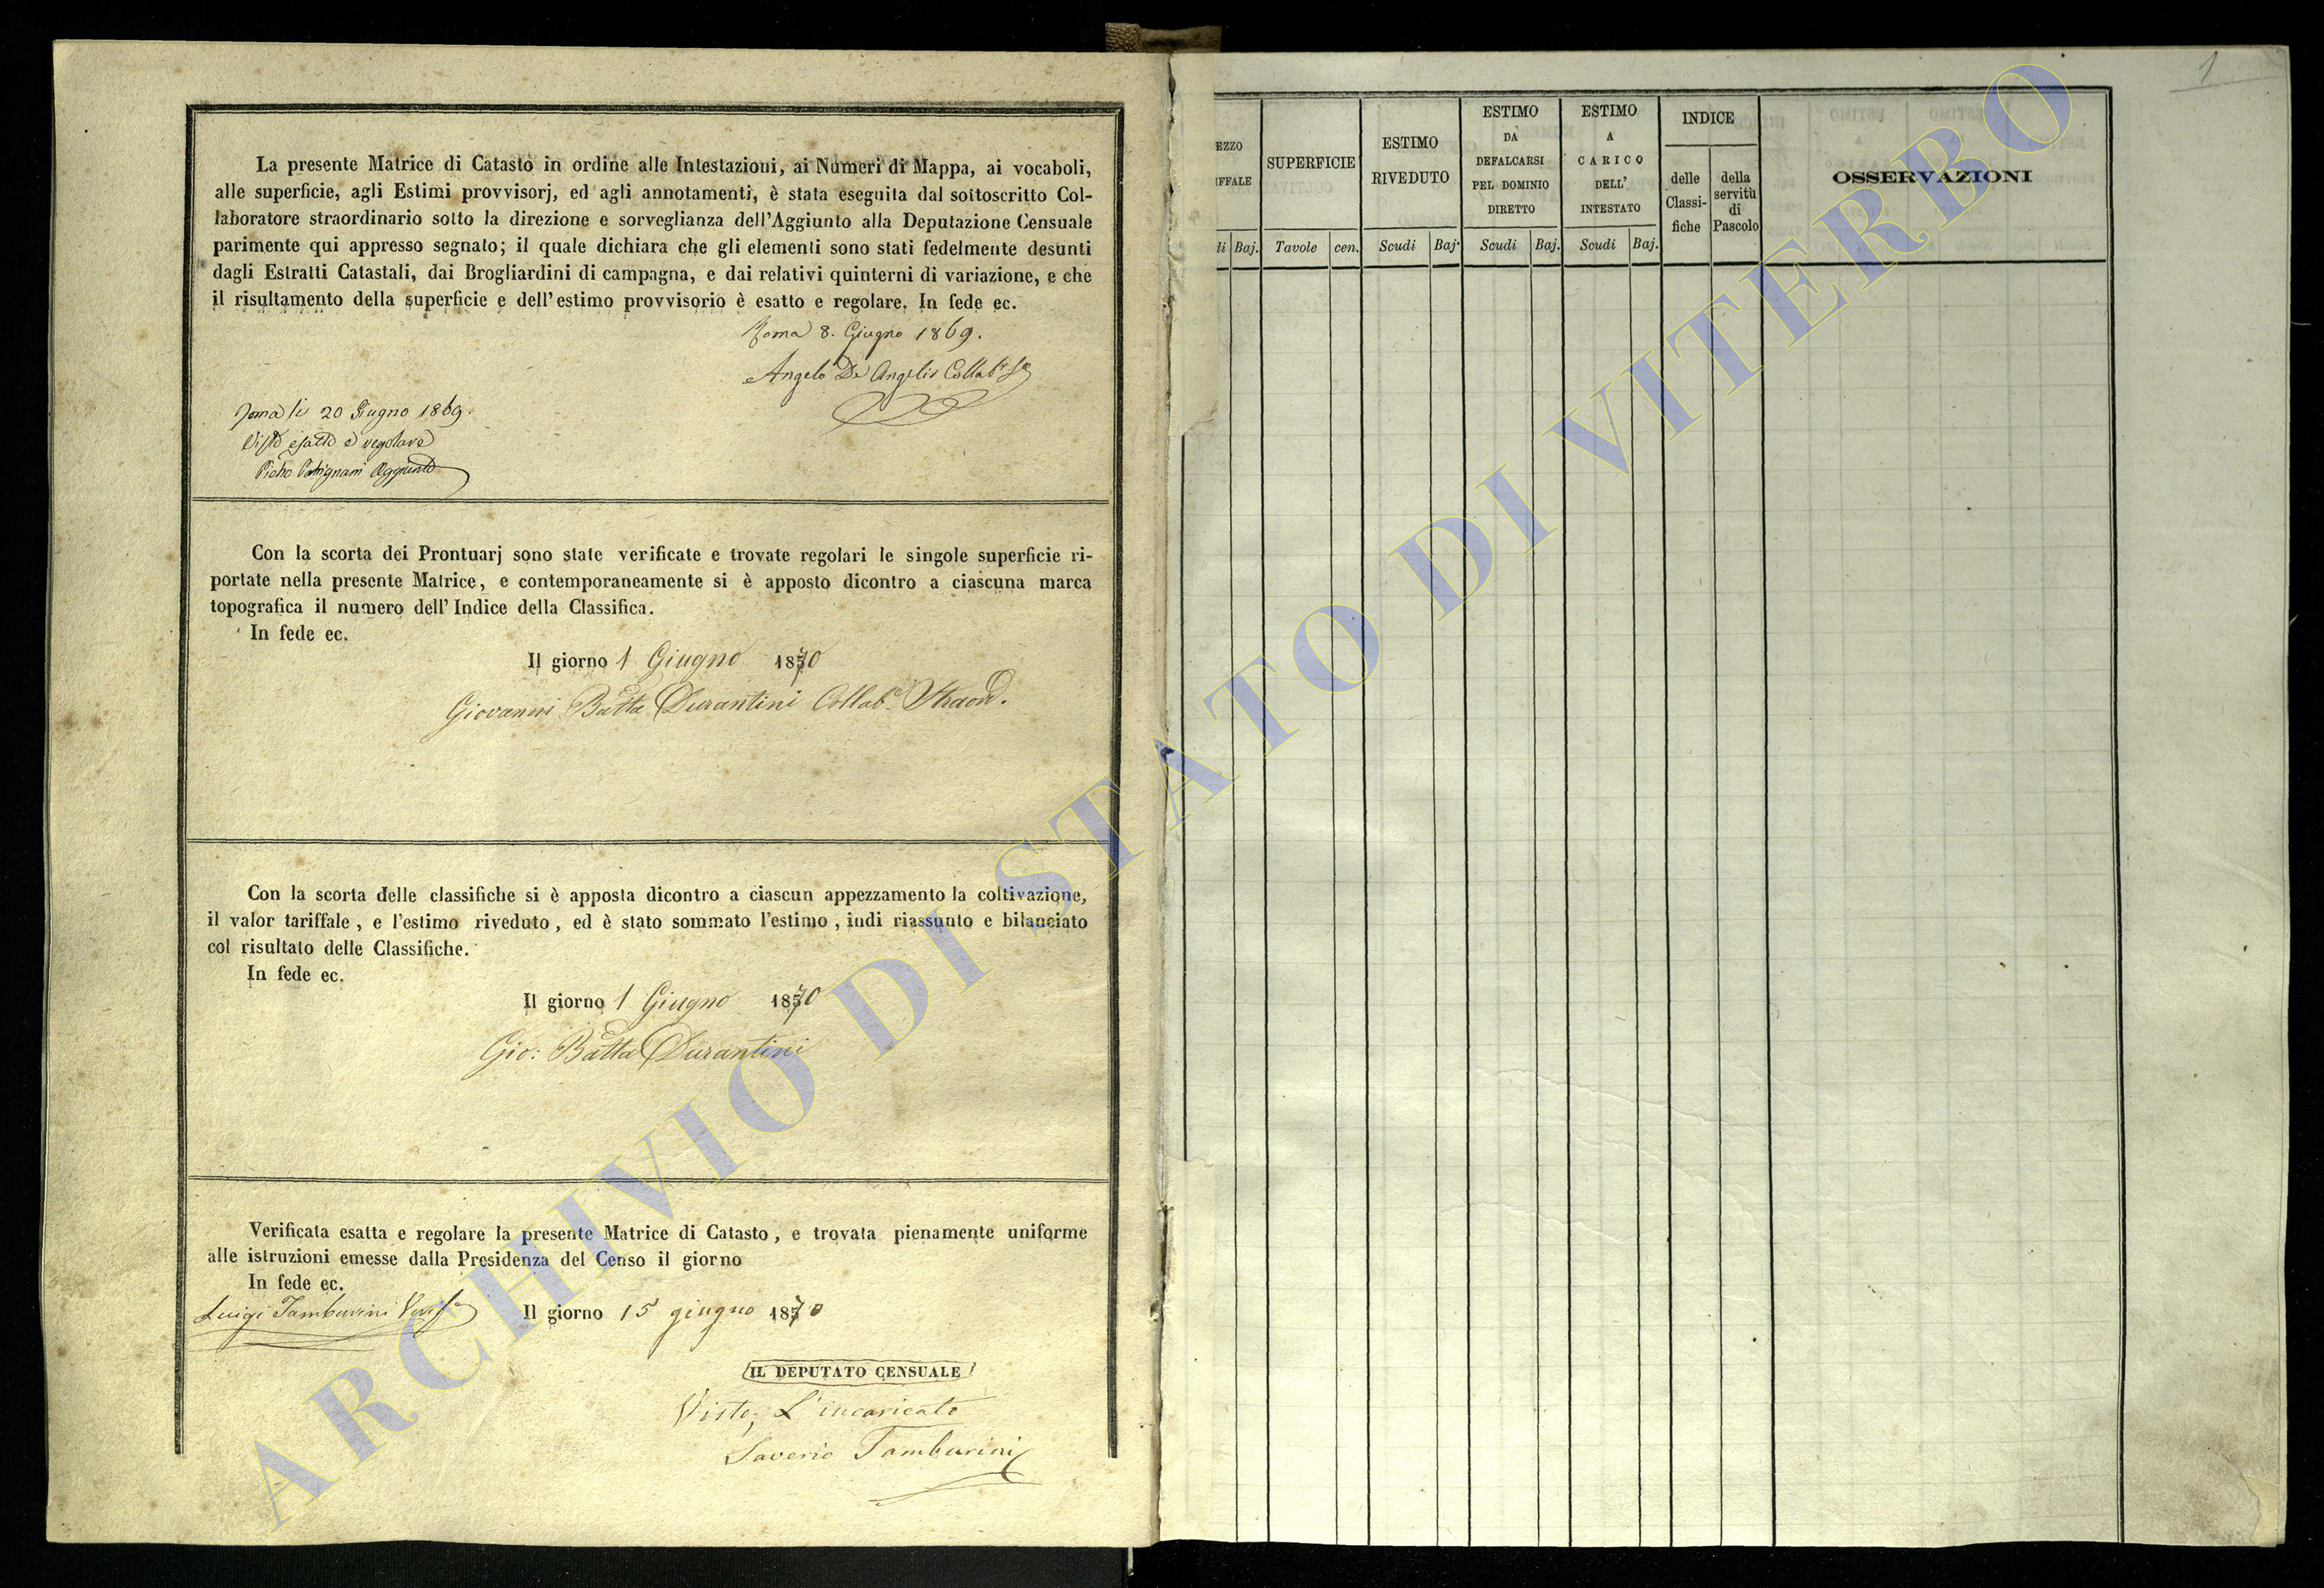 La presente Matrice di Catasto in ordine alle Intestazioni, ai Numeri di Mappa, ai vocaboli,
alle superficie, agli Estimi provvisorj, ed agli annotamenti, è stata eseguita dal sottoscritto Col-
laboratore straordinario sotto la direzione e sorveglianza dell'Aggiunto alla Deputazione Censuale
parimente qui appresso segnato; il quale dichiara che gli elementi sono stati fedelmente desunti
dagli Estratti Catastali, dai Brogliardini di campagna, e dai relativi quinterni di variazione, e che
il risultamento della superficie e dell'estimo provvisorio è esatto e regolare. In fede ec.
Roma 8. Giugno 1869.
Angelo De Angelis Collab.
Roma li 20 Giugno 1869.
Visto esatto e regolare
Aggiunto
Con la scorta dei Prontuarj sono state verificate e trovate regolari le singole superficie ri-
portate nella presente Matrice, e contemporaneamente si è apposto dicontro a ciascuna marca
topografica il numero dell'Indice della Classifica.
In fede ec.
Il giorno 1 Giugno 1870
Giovanni Batta Durantini Collab.e Straord.
Con la scorta delle classifiche si è apposta dicontro a ciascun appezzamento la coltivazione,
il valor tariffale, e l'estimo riveduto, ed è stato sommato l'estimo, indi riassunto e bilanciato
col risultato delle Classifiche.
In fede ec.
Il giorno 1 Giugno 1870
Gio: Batta Durantini
Verificata esatta e regolare la presente Matrice di Catasto, e trovata pienamente uniforme
alle istruzioni emesse dalla Presidenza del Censo il giorno
In fede ec.
Luigi Tamburini Verif.e Il giorno 15 giugno 1870
IL DEPUTATO CENSUALE
Visto; L'incaricato
Saverio Tamburini
1
EZZO
IFFALE
li Baj.
SUPERFICIE
Tavole cen.
ESTIMO
RIVEDUTO
Scudi Baj.
ESTIMO
DA
DEFALCARSI
PEL DOMINIO
DIRETTO
Scudi Baj.
ESTIMO
A
CARICO
DELL'
INTESTATO
Scudi Baj.
INDICE
delle
Classi-
fiche
della
servitù
di
Pascolo
OSSERVAZIONI
ARCHIVIO DI STATO DI VITERBO